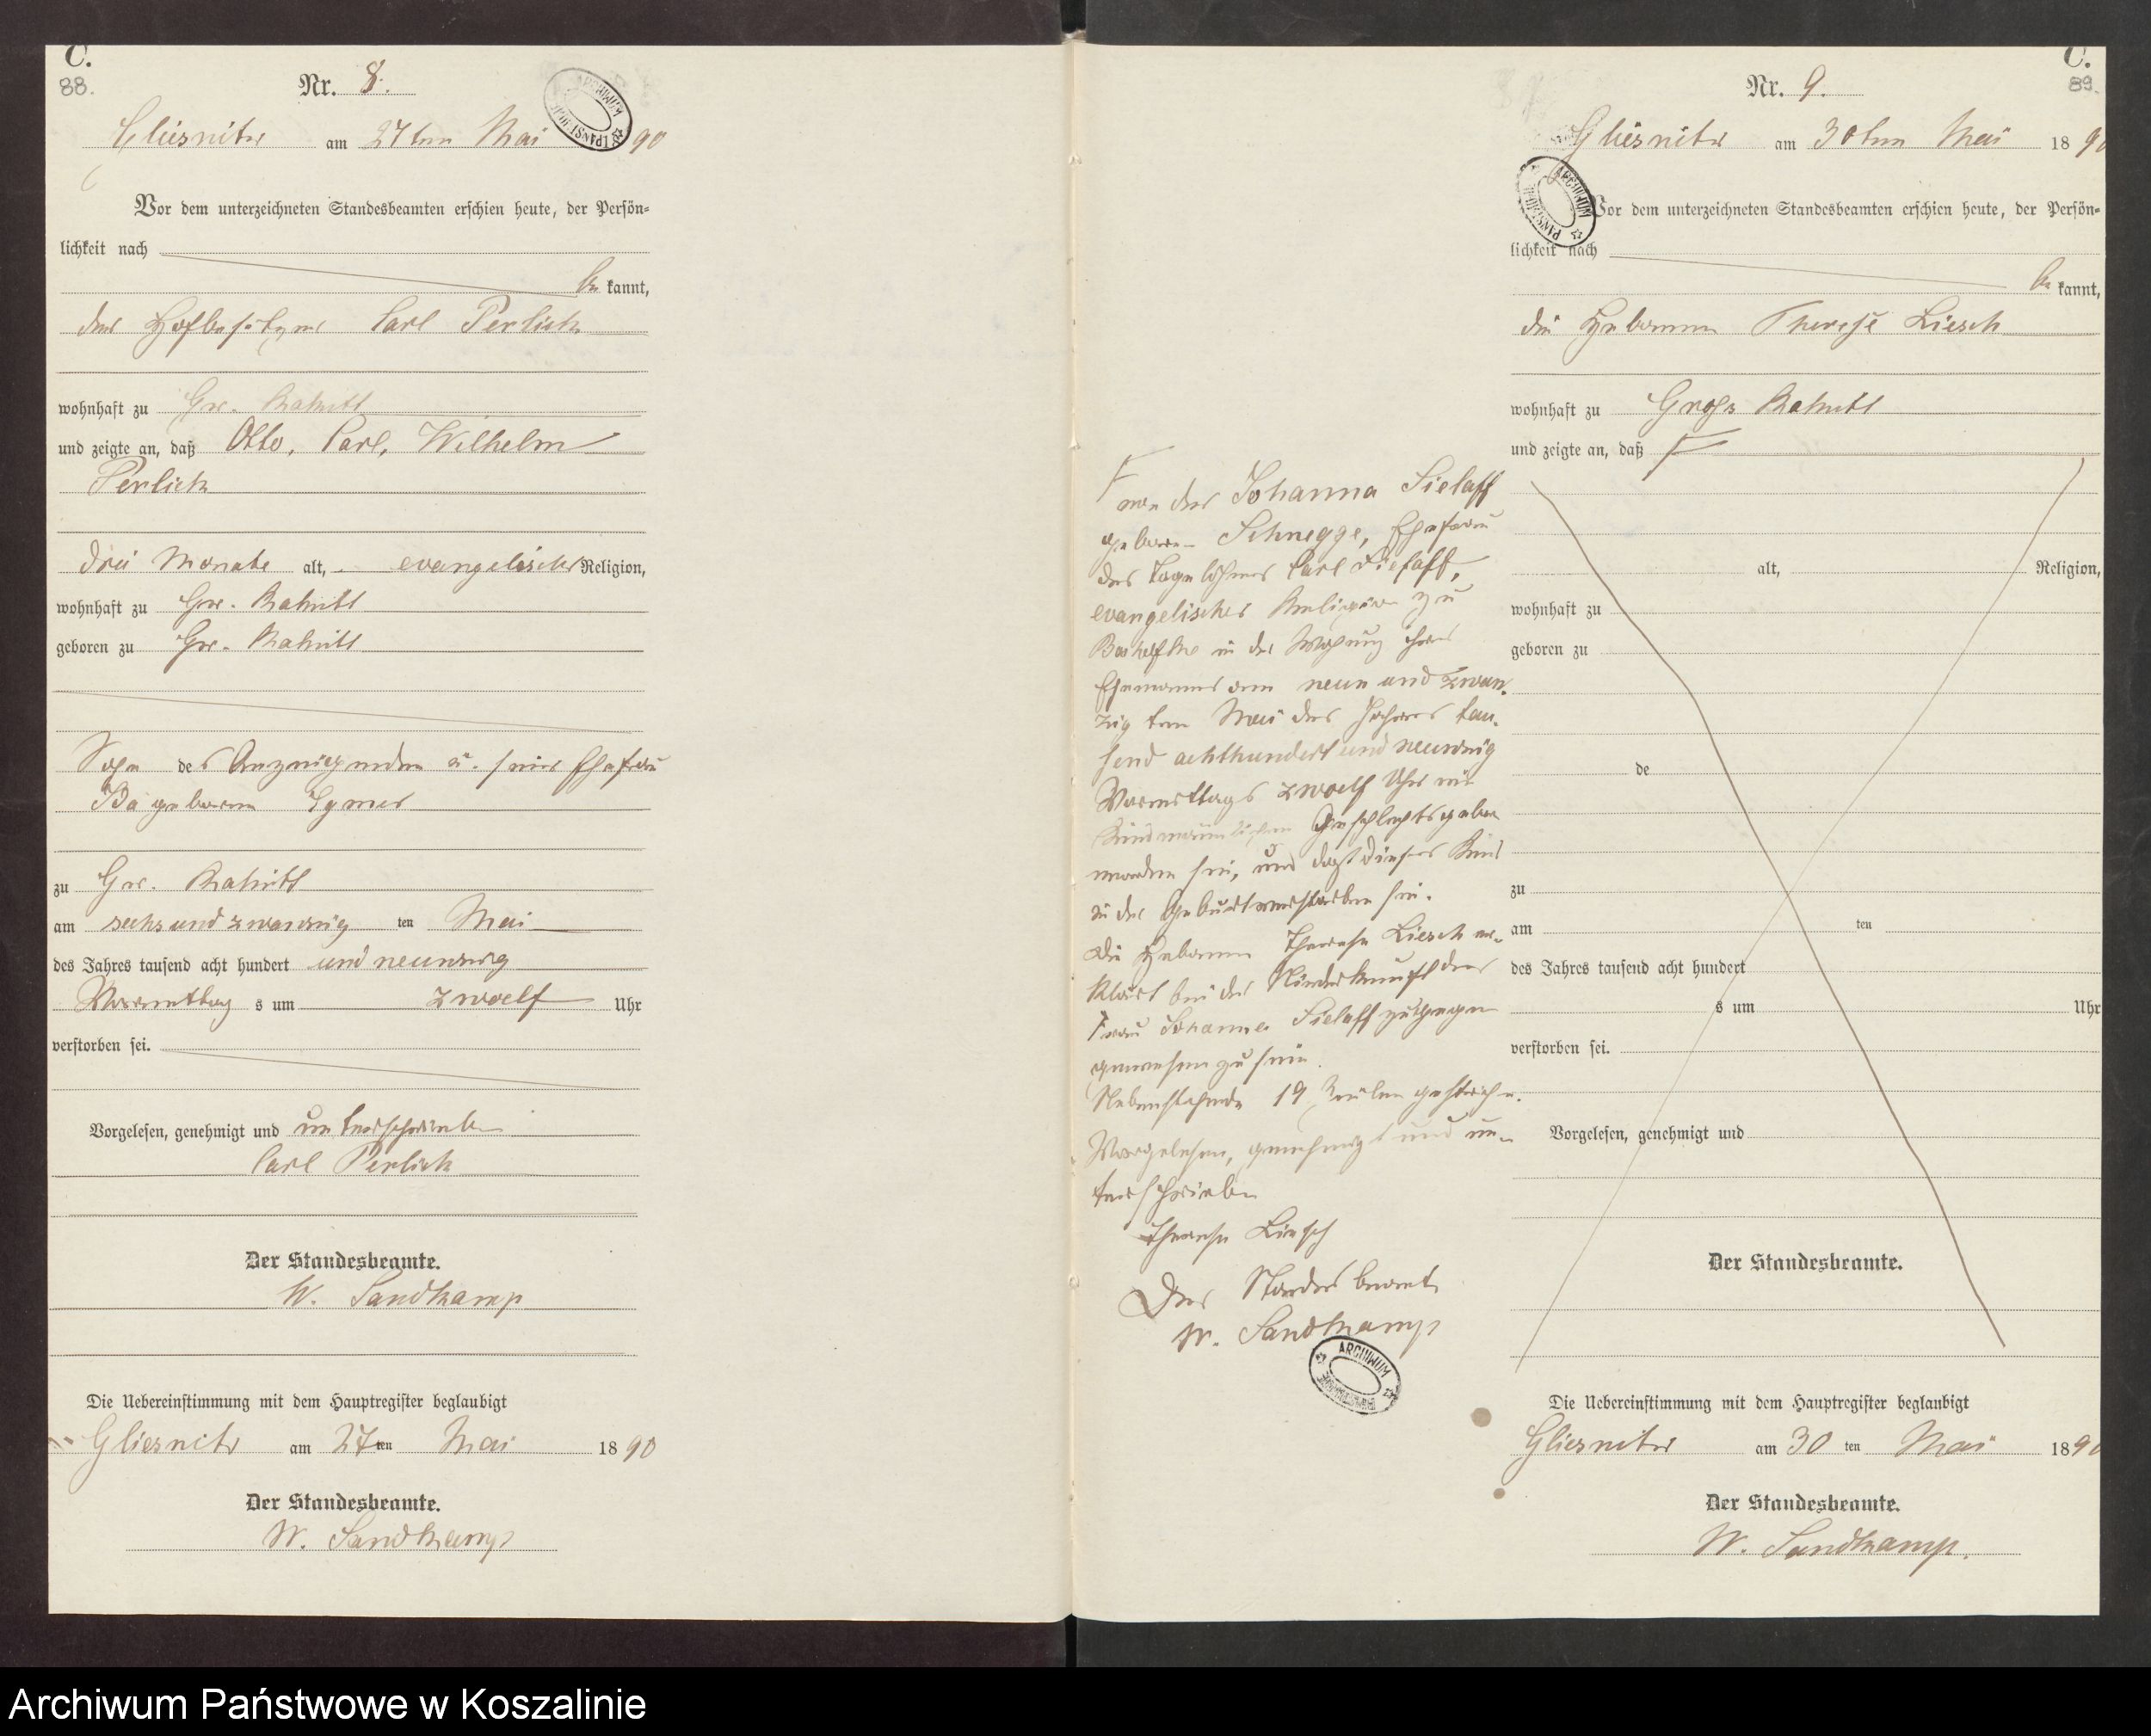 C.
88.
Nr. 8.
Gliesnitz am 27ten Mai 90
Vor dem unterzeichneten Standesbeamten erschien heute, der Persön-
lichkeit nach
be kannt,
der Hofbesitzer Carl Perlick
wohnhaft zu Gr. Rakitt
und zeigte an, daß Otto, Carl, Wilhelm
Perlick
drei Monate alt, evangelischer Religion,
wohnhaft zu Gr. Rakitt
geboren zu Gr. Rakitt
Sohn des Anzeigenden u. seiner Ehefrau
geborene
zu Gr. Rakitt
am sechs und zwanzig ten Mai
des Jahres tausend acht hundert und neunzig
Vormittag s um zwoelf Uhr
verstorben sei.
Vorgelesen, genehmigt und unterschrieben
Carl Perlick
Der Standesbeamte.
W. Sandkamp
Die Uebereinstimmung mit dem Hauptregister beglaubigt
Gliesnitz am 27ten Mai 1890
Der Standesbeamte.
W. Sandkamp
C.
89.
Nr. 9.
Gliesnitz am 30ten Mai 1890
Vor dem unterzeichneten Standesbeamten erschien heute, der Persön-
lichkeit nach
be kannt,
die Hebamme Therese Liesch
wohnhaft zu Gross Rakitt
und zeigte an, daß F
alt, Religion,
wohnhaft zu
geboren zu
de
zu
am ten
des Jahres tausend acht hundert
s um Uhr
verstorben sei.
Vorgelesen, genehmigt und
Der Standesbeamte.
Die Uebereinstimmung mit dem Hauptregister beglaubigt
Gliesnitz am 30 ten Mai 1890
Der Standesbeamte.
W. Sandkamp.
F
von der Johanna Sielaff
geborene Schnegge, Ehefrau
des Tagelöhners Carl Sielaff,
evangelischer Religion zu
in der Wohnung ihres
Ehemannes am neun und zwan-
zig ten Mai des Jahres tau-
send achthundert und neunzig
Vormittags zwoelf Uhr ein
Kind männlichen Geschlechts geboren
worden sei, und daß dieses Kind
in der Geburt verstorben sei.
Die Hebamme Therese Liesch er-
klärt bei der Niederkunft der
Frau Johanna Sielaff zugegen
gewesen zu sein.
Nebenstehende 19 Zeilen gestrichen.
Vorgelesen, genehmigt und un-
terschrieben
Therese Liesch
Der Standesbeamte
W. Sandkamp
ARCHIWUM
Archiwum Państwowe w Koszalinie